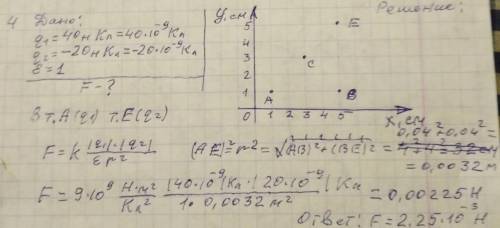 4 Дано:
q₁=40нКл=40·10⁻⁹Кл
q₂=-20нКл=-20·10⁻⁹Кл
ε=1
F-?
Решение:
У, см
5
4
3
2
1
0 1 2 3 4 5
X, см
E
C
A
B
В т.А(q₁) т.Е(q₂)
F=k |q₁|·|q₂| / εr²
(AE)²=r²=(AB)²+(BE)²=0,04²+0,04²=
=0,0032м
F=9·10⁹ Н·м²/Кл² |40·10⁻⁹|Кл·|20·10⁻⁹|Кл / 1·0,0032м² =0,00225Н
Ответ: F=2,25·10⁻³Н